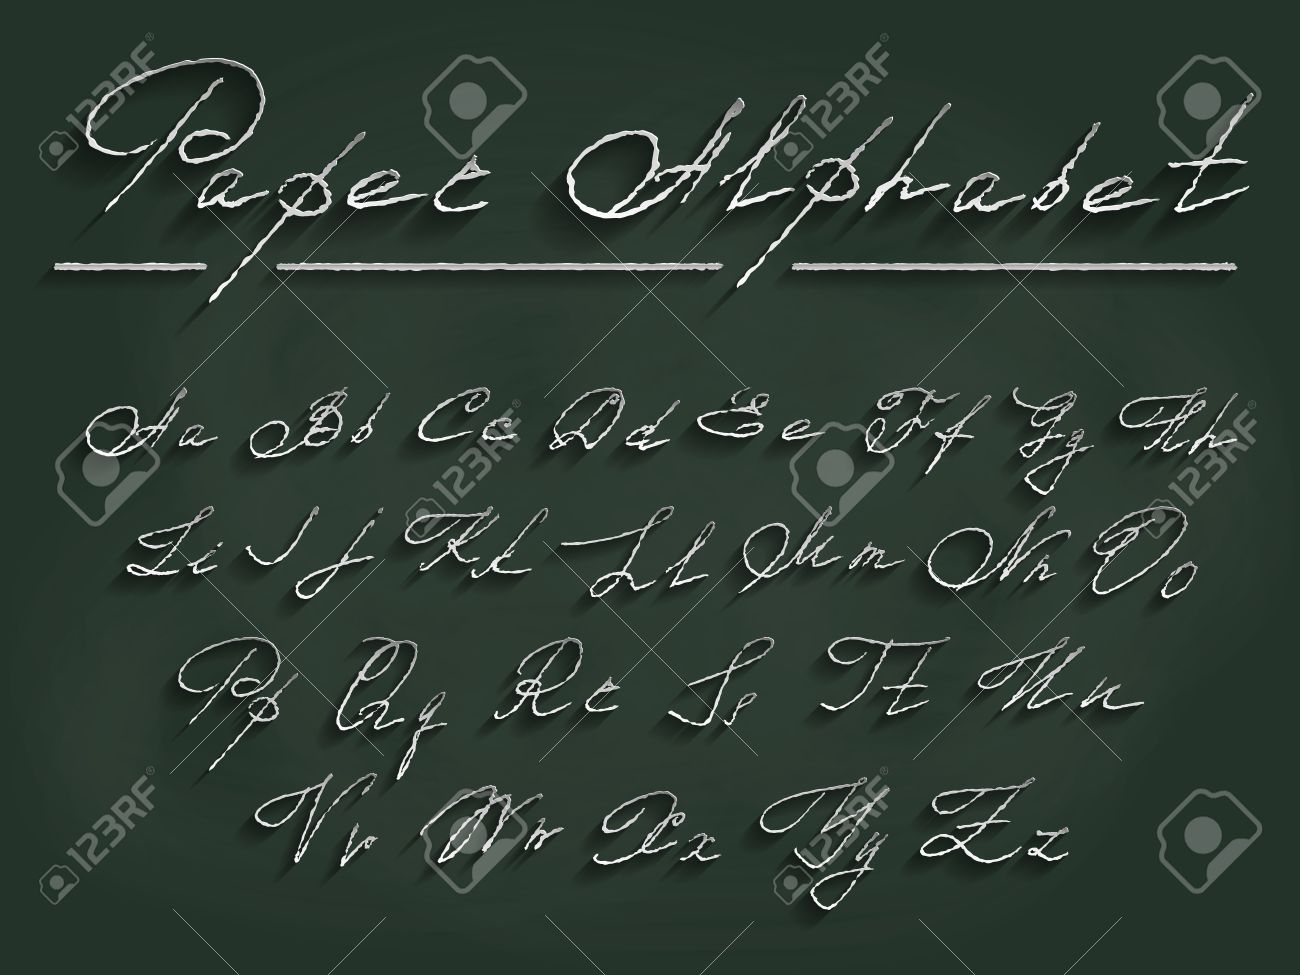 Paper Alphabet
Aa Bb Cc Dd Ee Ff Gg Hh
Ii Jj Kk Ll Mm Nn Oo
Pp Qq Rr Ss Tt Uu
Vv Ww Xx Yy Zz
123RF
123RF
123RF
123RF
123RF
123RF
123RF
123RF